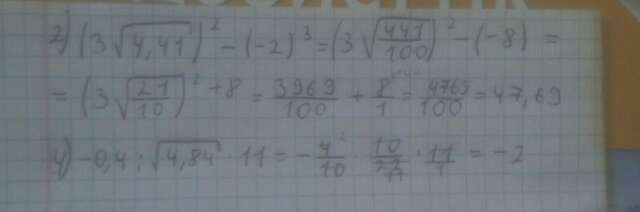 2) (3√4,41)² - (-2)³ = (3√441/100)² - (-8) =
= (3√21/10)² + 8 = 3969/100 + 8/1 = 4769/100 = 47,69
4) -0,4 : √4,84 · 11 = - 4/10 · 10/22 · 11/1 = -2